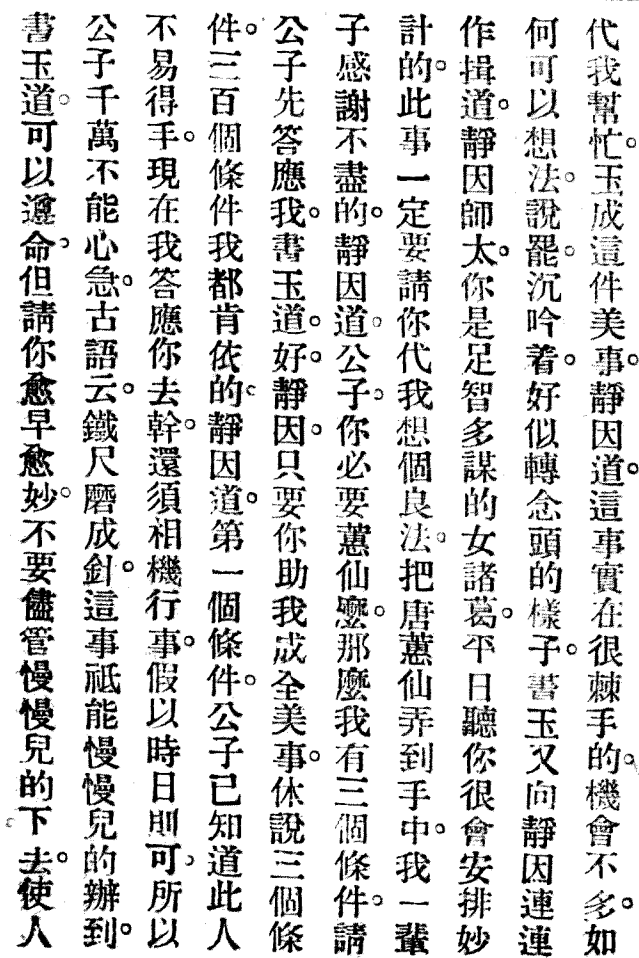 代我幫忙。玉成這件美事。靜因道。這事實在很棘手的。機會不多。如
何可以想法。說罷。沉吟着。好似轉念頭的樣子。書玉又向靜因連連
作揖道。靜因師太。你是足智多謀的女諸葛。平日聽你很會安排妙
計的。此事一定要請你代我想個良法。把唐蕙仙弄到手中。我一輩
子感謝不盡的。靜因道。公子。你必要蕙仙麼。那麼我有三個條件。請
公子先答應我。書玉道。好。靜因。只要你助我成全美事。休說三個條
件。三百個條件我都肯依的。靜因道。第一個條件。公子已知道此人
不易得手。現在我答應你去幹。還須相機行事。假以時日則可。所以
公子千萬不能心急。古語云。鐵尺磨成針。這事祗能慢慢兒的辦到。
書玉道。可以遵命。但請你愈早愈妙。不要儘管慢慢兒的下去。使人